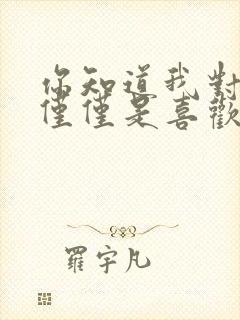 你知道我對
僅僅是喜歡
羅宇凡